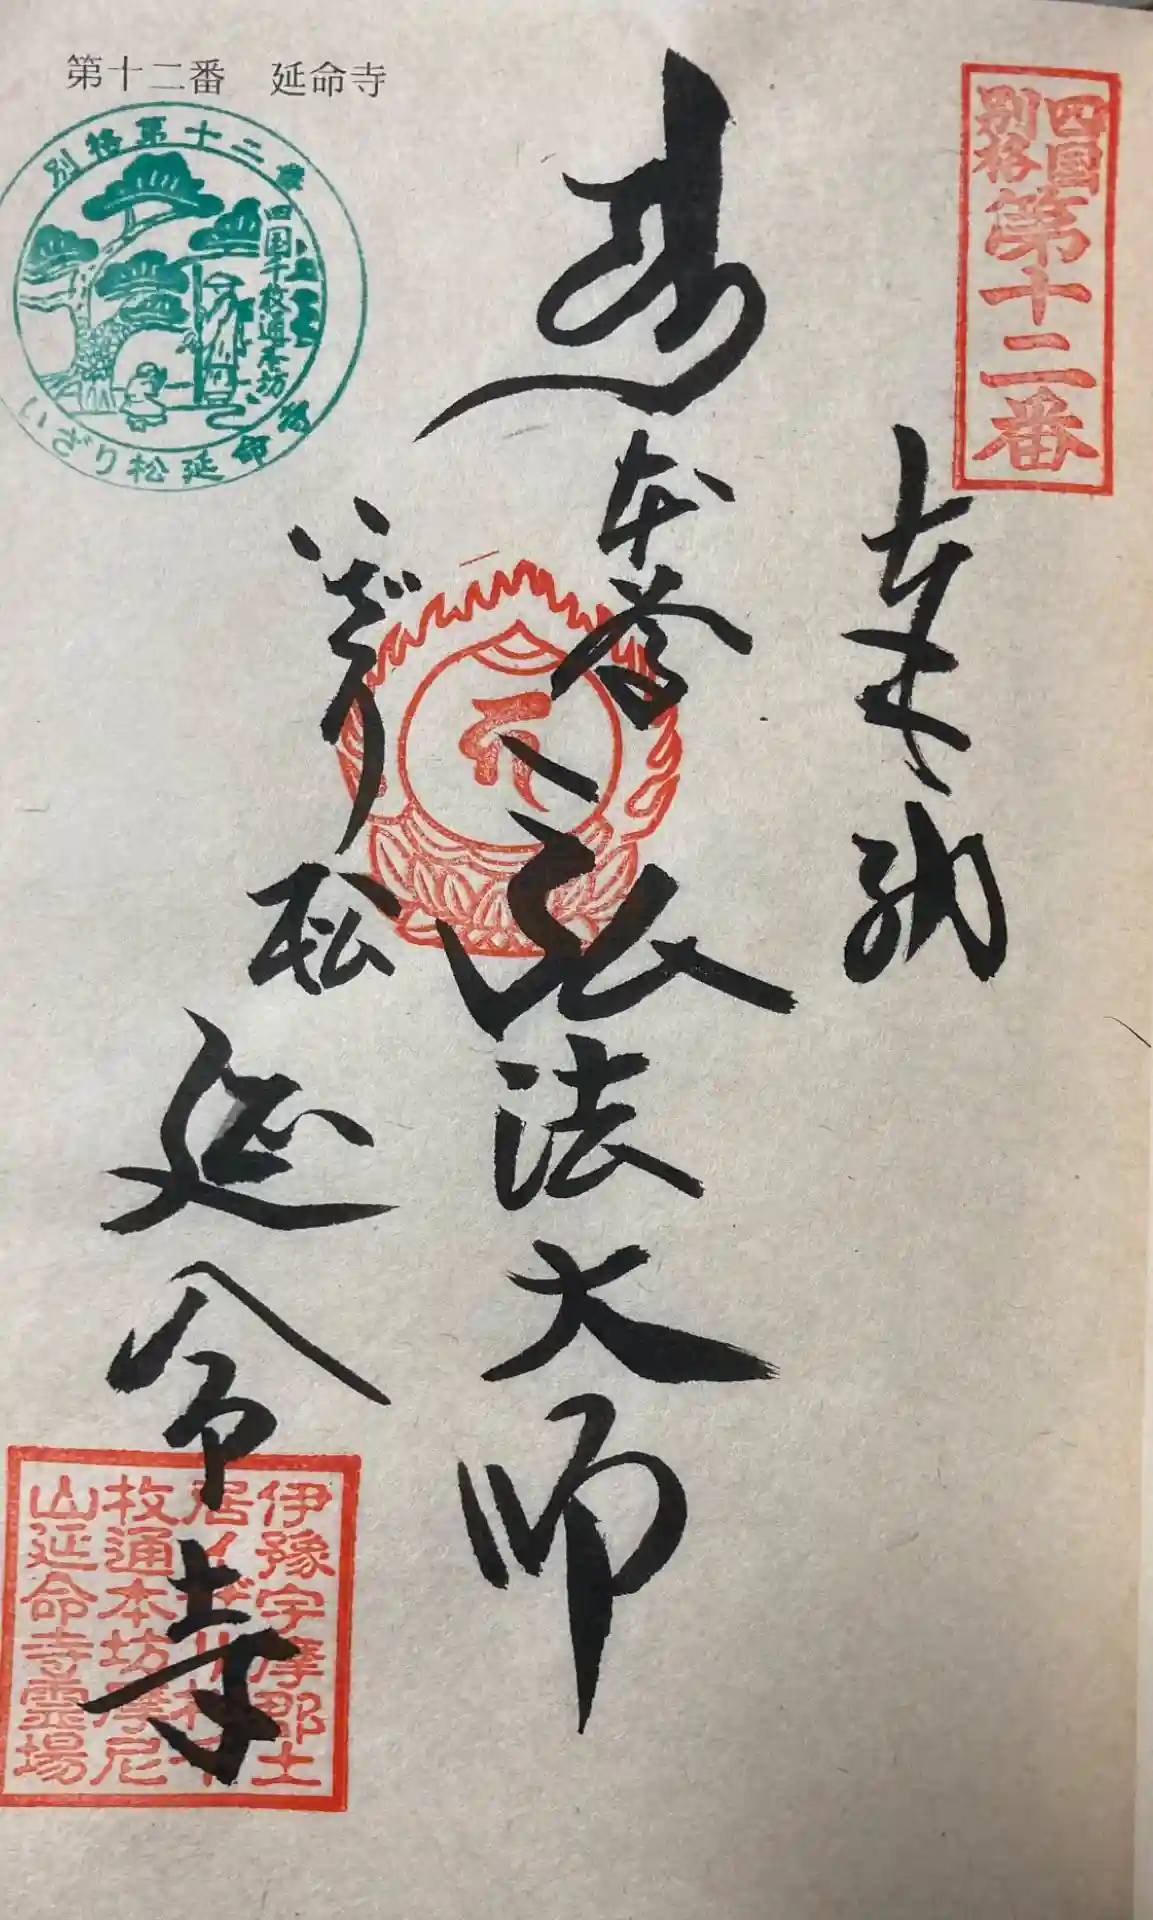 第十二番　延命寺
四国
別格
第十二番
奉納
本尊
弘法大師
いざり松
延命寺
別格第十二番
四国千枚通本坊
いざり松延命寺
伊豫宇摩郡土
居イザリ松千
枚通本坊摩尼
山延命寺霊場